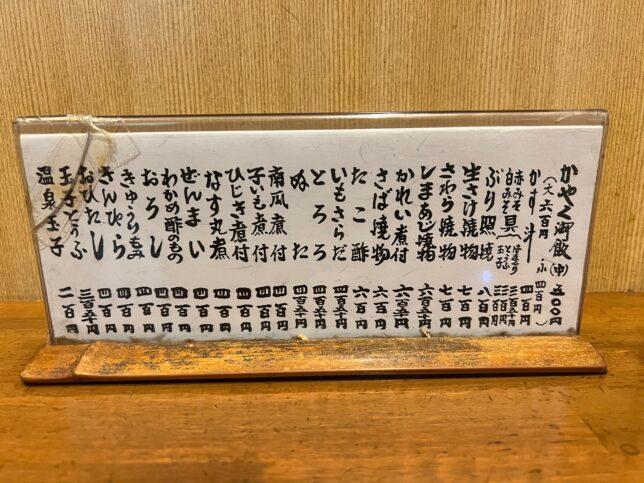 かやく御飯(中) 五〇〇円
(大六百円 小四百円)
かす汁 四百円
赤みそ 白みそ 具 とうふ 玉子
ぶり照焼 八百円
生さけ焼物 七百円
さわら焼物 七百円
しまあじ焼物 六百五十円
かれい煮付 六百五十円
さば焼物 六百円
たこ酢 六百円
いもさらだ 四百五十円
とろろ 四百五十円
ぬた 四百五十円
南瓜煮付 四百円
子いも煮付 四百円
ひじき煮付 四百円
なす丸煮 四百円
ぜんまい 四百円
わかめ酢のもの 四百円
おろし 四百円
きゅうりもみ 四百円
きんぴら 四百円
おひたし 三百五十円
玉子とうふ
温泉玉子 二百円